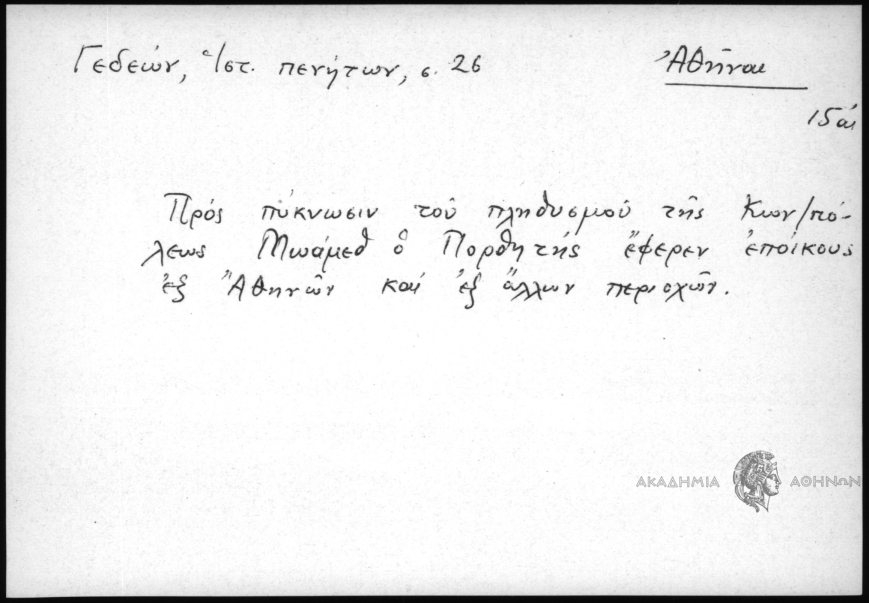 Γεδεών, Ἱστ. πενήτων, σ. 26
Ἀθῆναι
15 αἰ
Πρός πύκνωσιν τοῦ πληθυσμοῦ τῆς Κων/πό-
λεως Μωάμεθ ὁ Πορθητής ἔφερεν ἐποίκους
ἐξ Ἀθηνῶν καί ἐξ ἄλλων περιοχῶν.
ΑΚΑΔΗΜΙΑ ΑΘΗΝΩΝ